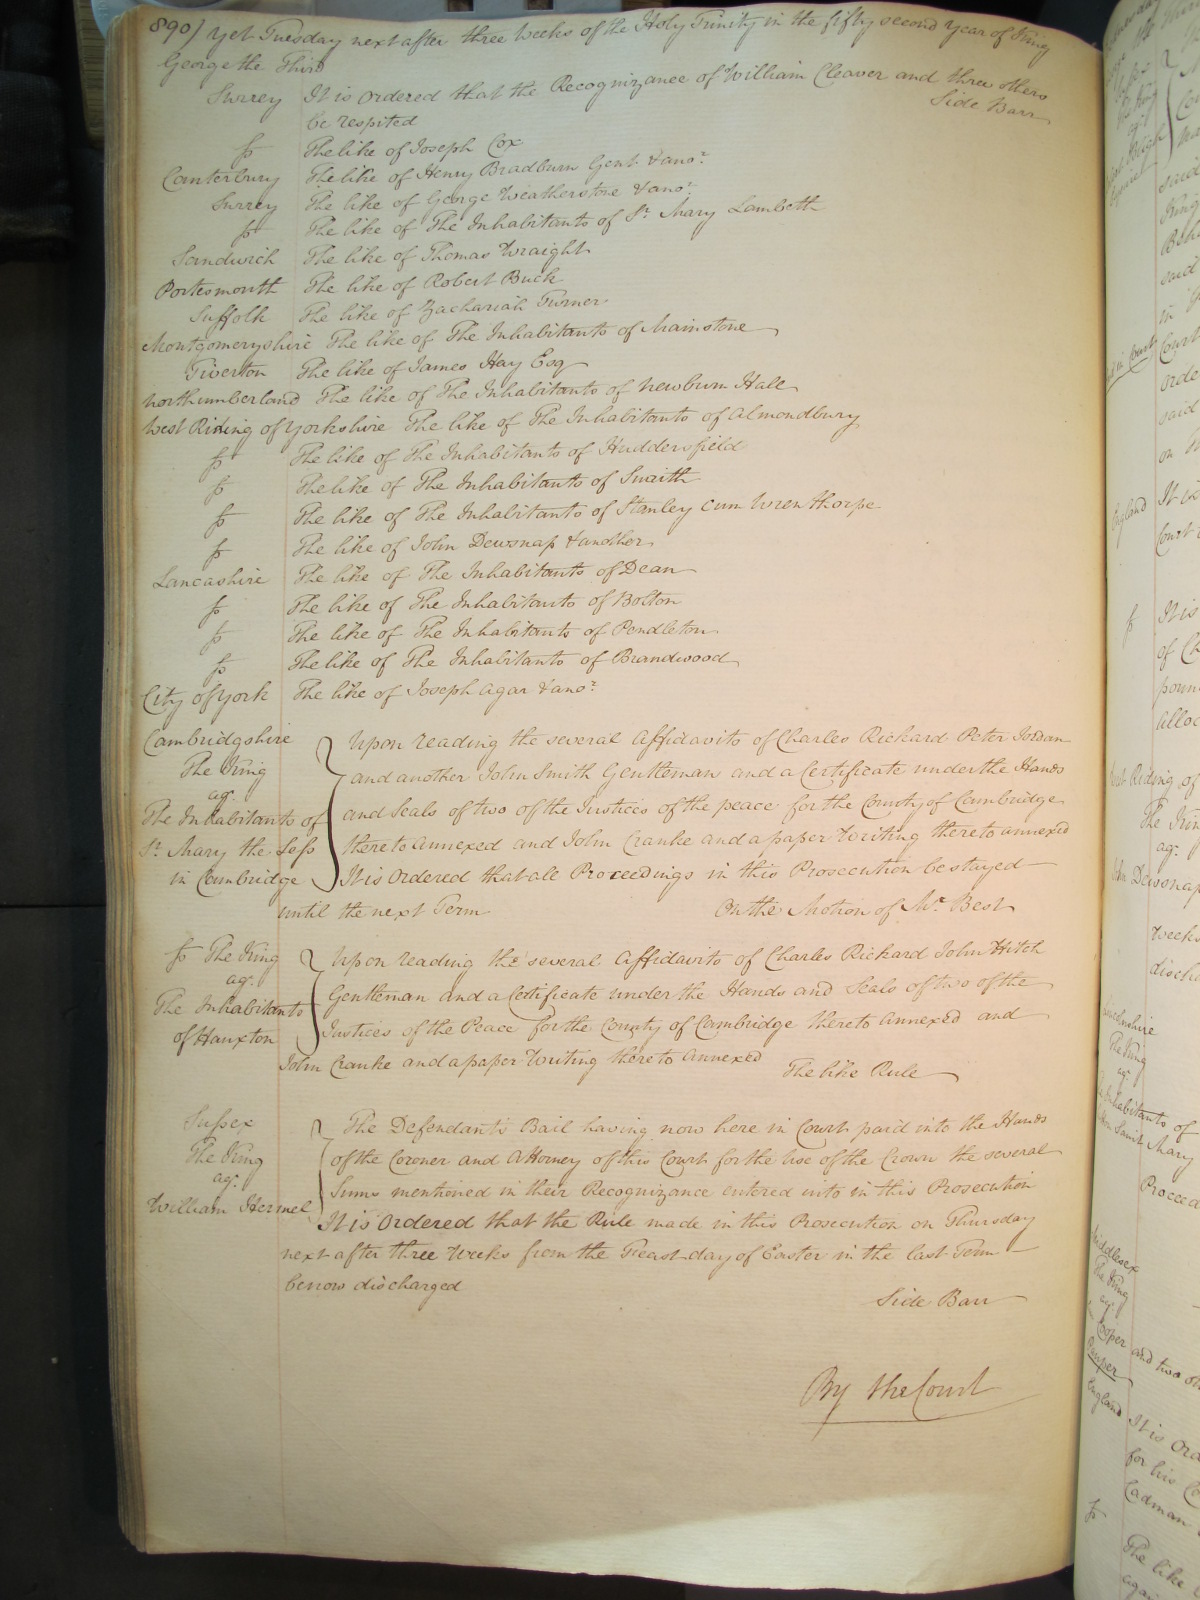 890/ Yet Tuesday next after three Weeks of the Holy Trinity in the fifty second Year of King
George the Third
Surrey It is Ordered that the Recognizance of William Cleaver and three others
be respited Side Barr
fs The like of Joseph Cox
Canterbury The like of Henry Bradburn Gent & anor.
Surrey The like of George Weatherstone & anor.
fs The like of The Inhabitants of St. Mary Lambeth
Sandwich The like of Thomas Wraight
Portesmouth The like of Robert Buck
Suffolk The like of Zachariah Turner
Montgomeryshire The like of The Inhabitants of Mainstone
Tiverton The like of James Hay Esq
Northumberland The like of The Inhabitants of Newburn Hall
West Riding of Yorkshire The like of The Inhabitants of Almondbury
fs The like of The Inhabitants of Huddersfield
fs The like of The Inhabitants of Snaith
fs The like of The Inhabitants of Stanley cum Wrenthorpe
fs The like of John Dewsnap & another
Lancashire The like of The Inhabitants of Dean
fs The like of The Inhabitants of Bolton
fs The like of The Inhabitants of Pendleton
fs The like of The Inhabitants of Brandwood
City of York The like of Joseph Agar & anor.
Cambridgshire Upon reading the several Affidavits of Charles Richard Peter Jordan
The King and another John Smith Gentleman and a Certificate under the Hands
agt. and Seals of two of the Justices of the peace for the County of Cambridge
The Inhabitants of thereto annexed and John Cranke and a paper Writing thereto annexed
St. Mary the Less It is Ordered that all Proceedings in this Prosecution be stayed
in Cambridge
until the next Term On the Motion of Mr. Best
fs The King Upon reading the several Affidavits of Charles Rickard John Hitch
agt. Gentleman and a Certificate under the Hands and Seals of two of the
The Inhabitants Justices of the Peace for the County of Cambridge thereto annexed and
of Hauxton
John Cranke and a paper Writing thereto annexed The like Rule
Sussex The Defendants Bail having now here in Court paid into the Hands
The King of the Coroner and Attorney of this Court for the Use of the Crown the several
agt. Sums mentioned in their Recognizance entered into in this Prosecution
William Hermel It is Ordered that the Rule made in this Prosecution on Thursday
next after three Weeks from the Feast day of Easter in the last Term
be now discharged
Side Barr
By the Court